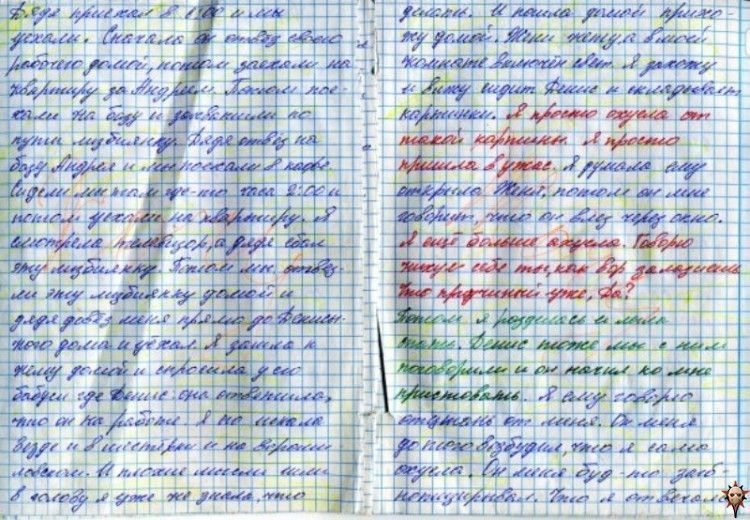 Дядя приехал в 1:00 и мы
уехали. Сначала он отвёз своего
рабочего домой, потом заехали на
квартиру за Андреем. Потом пое-
хали на базу и захватили по
пути лизбиянку. Дядя отвёз на
базу Андрея и мы поехали в кафе.
Сидели мы там где-то часа 2:00 и
потом уехали на квартиру. Я
смотрела телевизор, а дядя ебал
эту лизбиянку. Потом мы отвез-
ли эту лизбиянку домой и
дядя довёз меня прямо до Денисы-
ного дома и уехал. Я зашла к
нему домой и спросила у его
бабуси где Денис: она ответила,
что он на работе. Я по искала
везде и в шестёрки и на Вороши
ловском. И плохие мысли шли
в голову я уже не знала, что
делать. И пошла домой прихо-
жу домой. Жени нету, а в моей
комнате включён свет. Я захожу
и вижу сидит Денис и складывает
картинки. Я просто охуела от
такой картины. Я просто
пришла в ужас. Я думала ему
открыла Женя, потом он мне
говорит, что он влез через окно.
Я ещё больше охуела. Говорю
нихуя себе ты, как вор залазиешь
что придурный уже, да?
Потом я розделась и лягла
спать. Денис тоже мы с ним
поговорили и он начил ко мне
приставать. Я ему говорю
отстань от меня. Он меня
до того возбудил, что я сама
охуела. Он меня буд-то загиб-
нотизировал. Что я отвечала